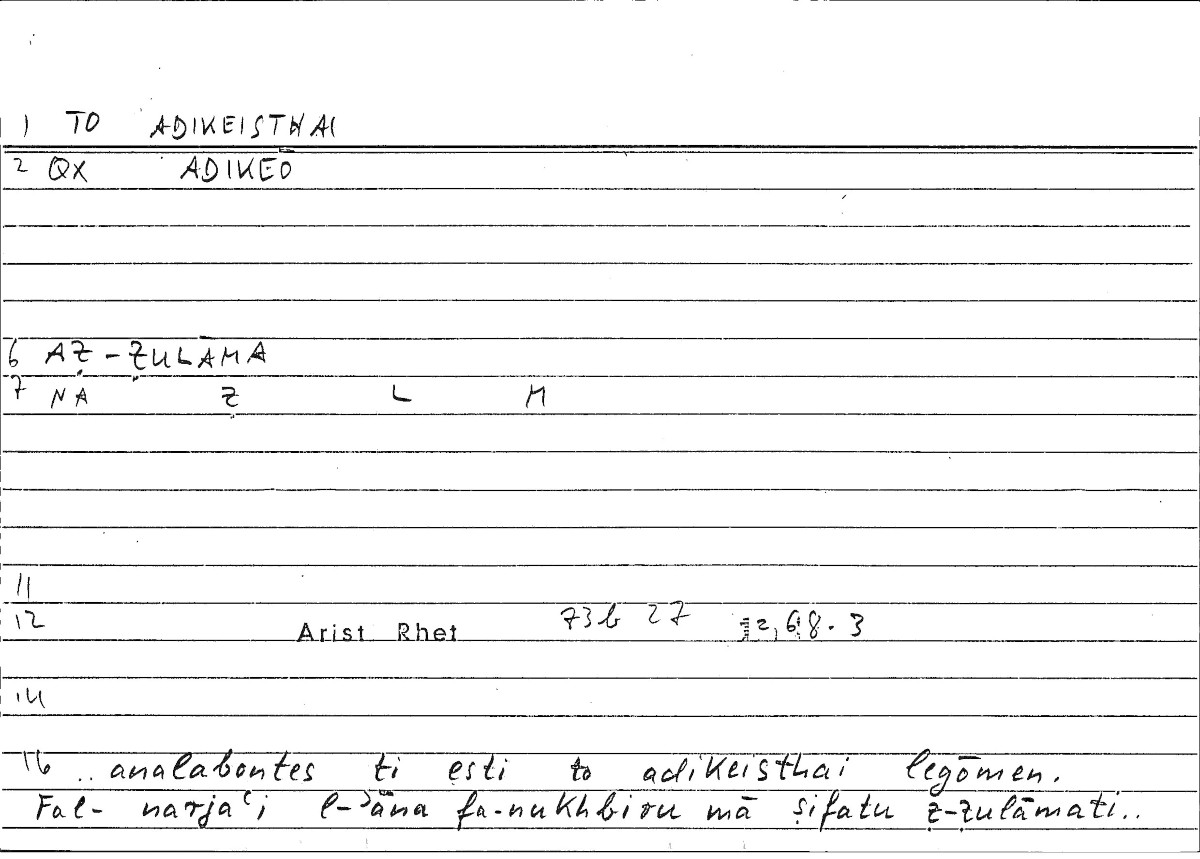 1 TO ADIKEISTHAI
2 QX ADIKEŌ
6 AẒ-ẒULĀMA
7 NA Ẓ L M
11
12 Arist Rhet 73b 27 68.3
14
16 .. analabontes ti esti to adikeisthai legōmen.
Fal- narjaʿi l-ʾāna fa-nukhbiru mā ṣifatu ẓ-ẓulāmati..